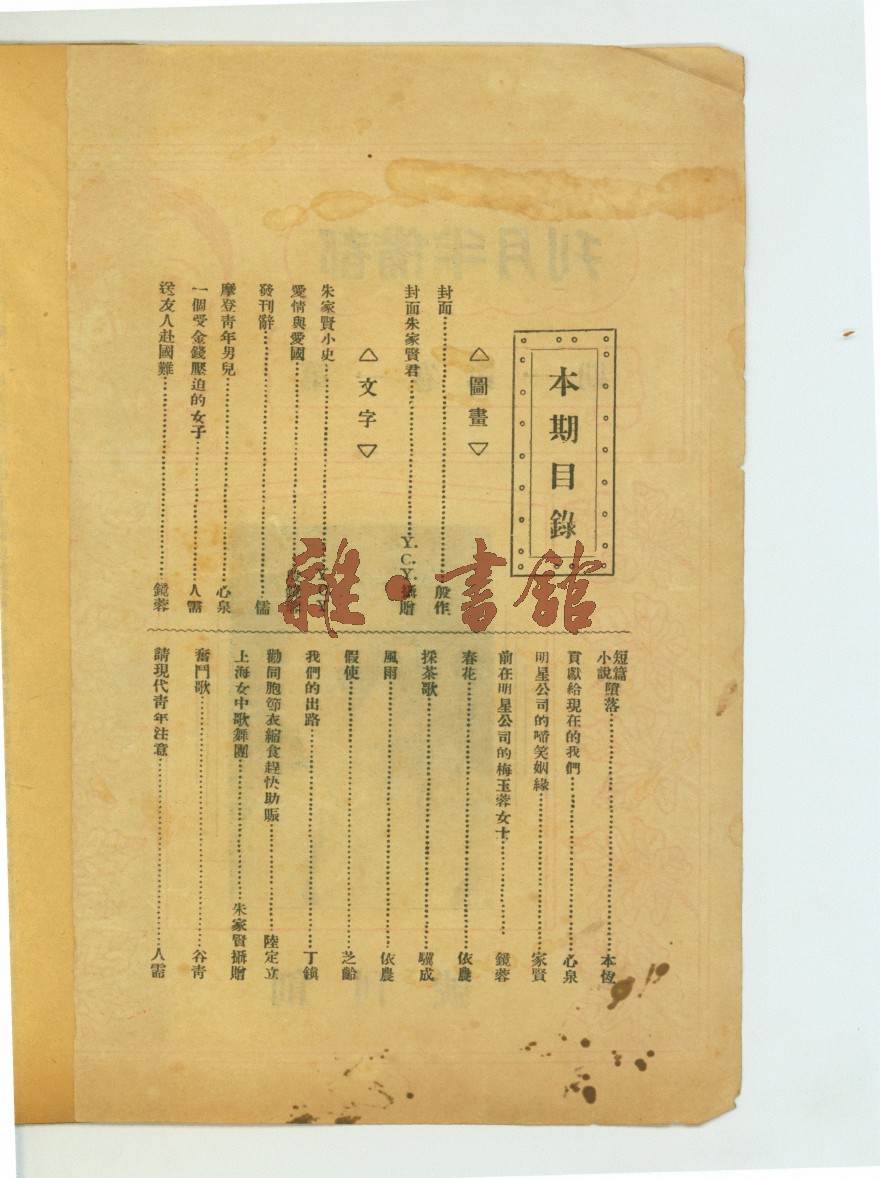 本期目錄
△圖畫▽
封面……殷作
封面朱家賢君……Y.C.Y.攝贈
△文字▽
朱家賢小史……Y.C.Y
愛情與愛國……
發刊辭……儒
摩登靑年男兒……心泉
一個受金錢壓迫的女子……人需
送友人赴國難……鏡蓉
短篇小說墮落……本恆
貢獻給現在的我們……心泉
明星公司的啼笑姻緣……家賢
前在明星公司的梅玉蓉女士……鏡蓉
春花……依農
採茶歌……驥成
風雨……依農
假使……芝齡
我們的出路……丁鎮
勸同胞節衣縮食趕快助賑……陸定立
上海女中歌舞團……朱家賢攝贈
奮鬥歌……谷靑
請現代靑年注意……人需
雜·書館